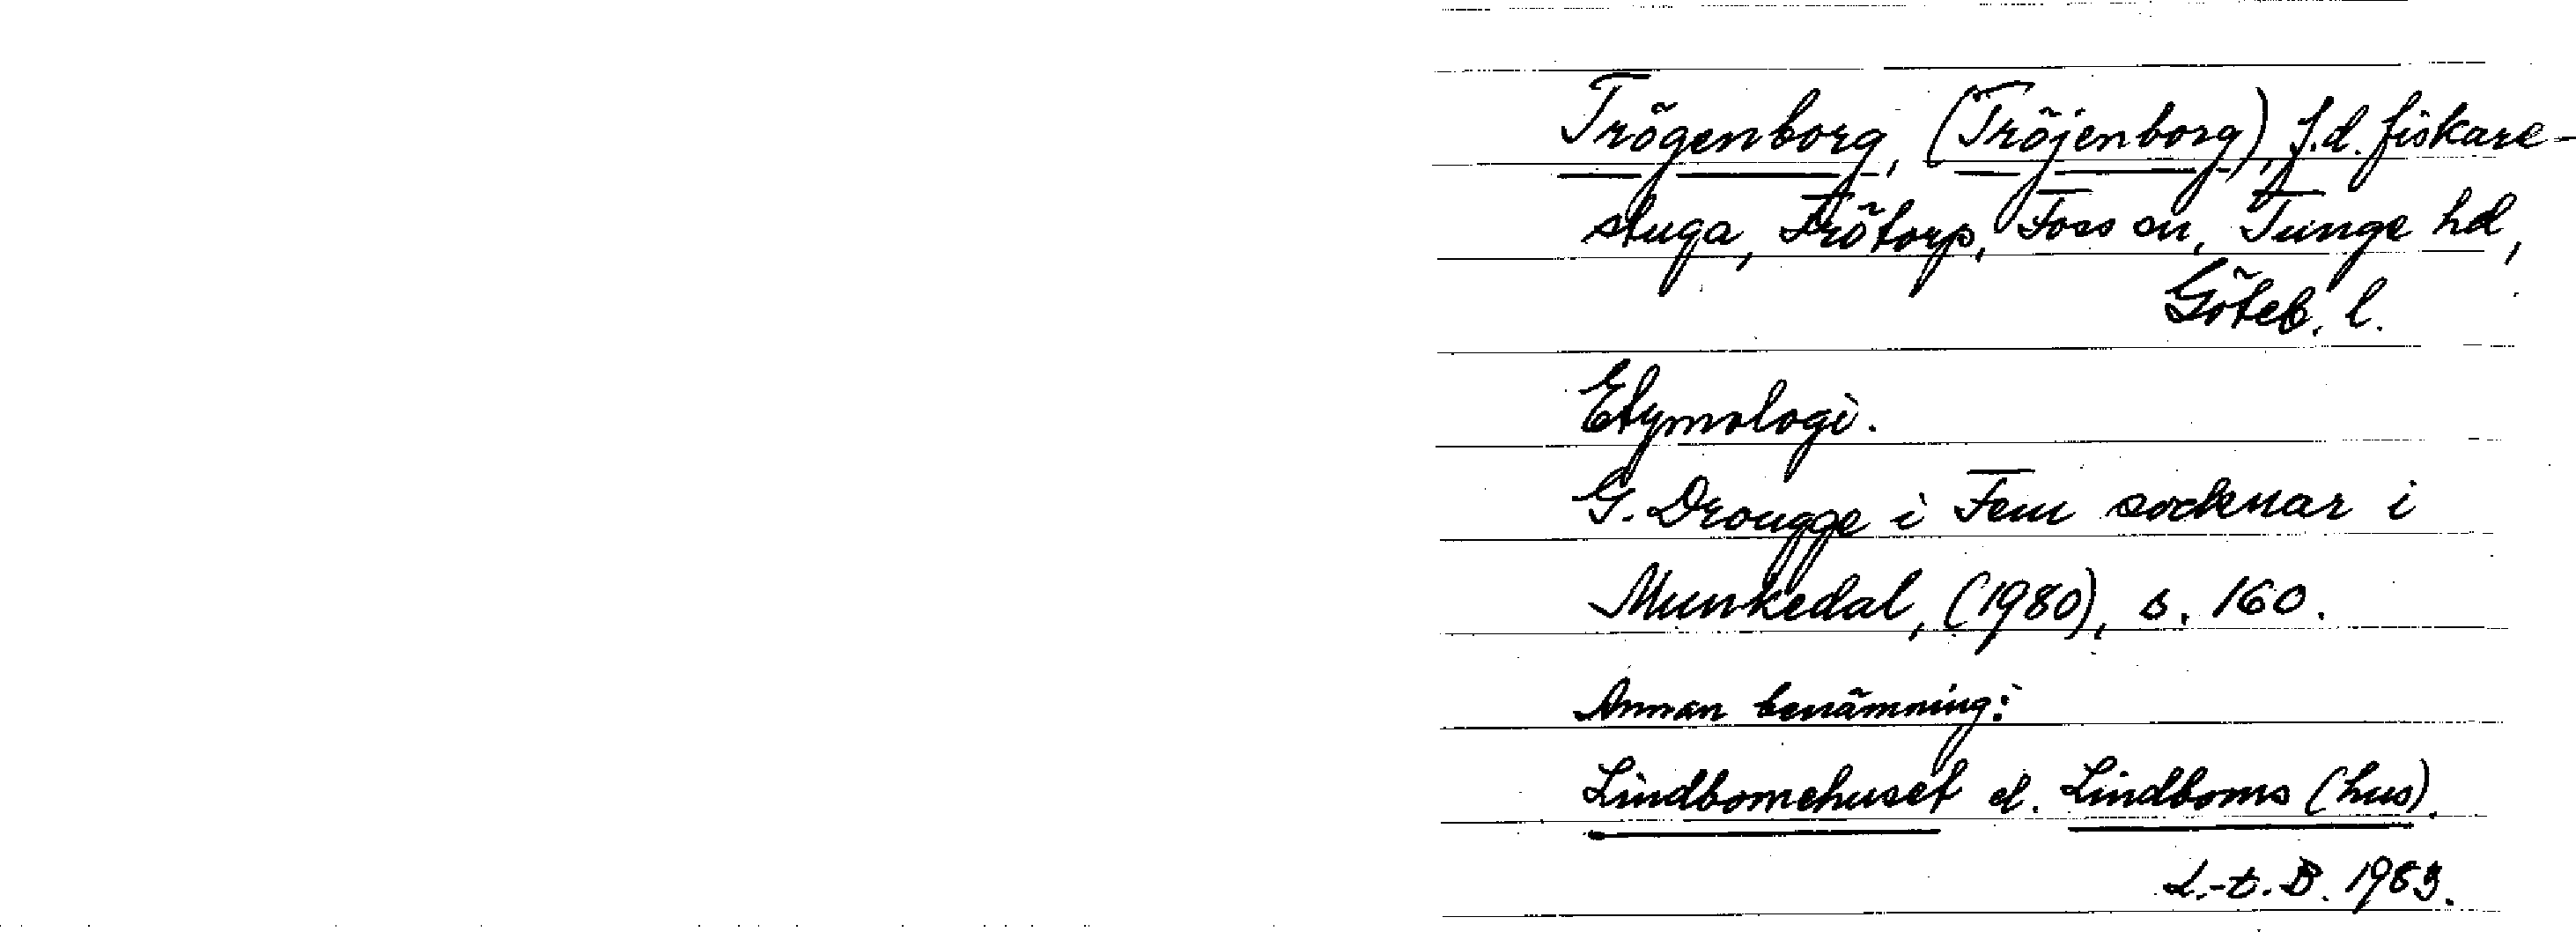 Trögenborg, (Tröjenborg), f.d. fiskare-
stuga, Frötorp, Foss sn, Tunge hd,
Göteb. l.
Etymologi.
G. Drougge i Fem socknar i
Munkedal, (1980), s. 160.
Annan benämning:
Lindbomehuset el. Lindboms (hus).
L.-t. B. 1983.